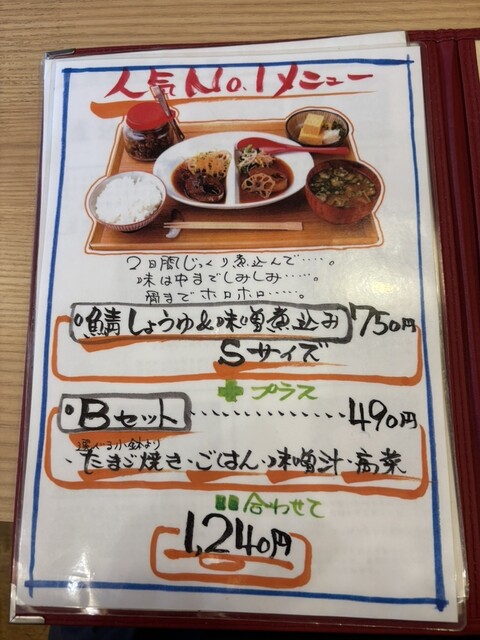 人気No.1メニュー
2日間じっくり煮込んで‥‥。
味は中までしみしみ‥‥。
骨までホロホロ‥‥‥。
鯖しょうゆ&味噌煮込み 750円
Sサイズ
➕プラス
・Bセット‥‥‥‥‥490円
選べる小鉢より
・たまご焼き・ごはん・味噌汁・高菜
合わせて
1,240円